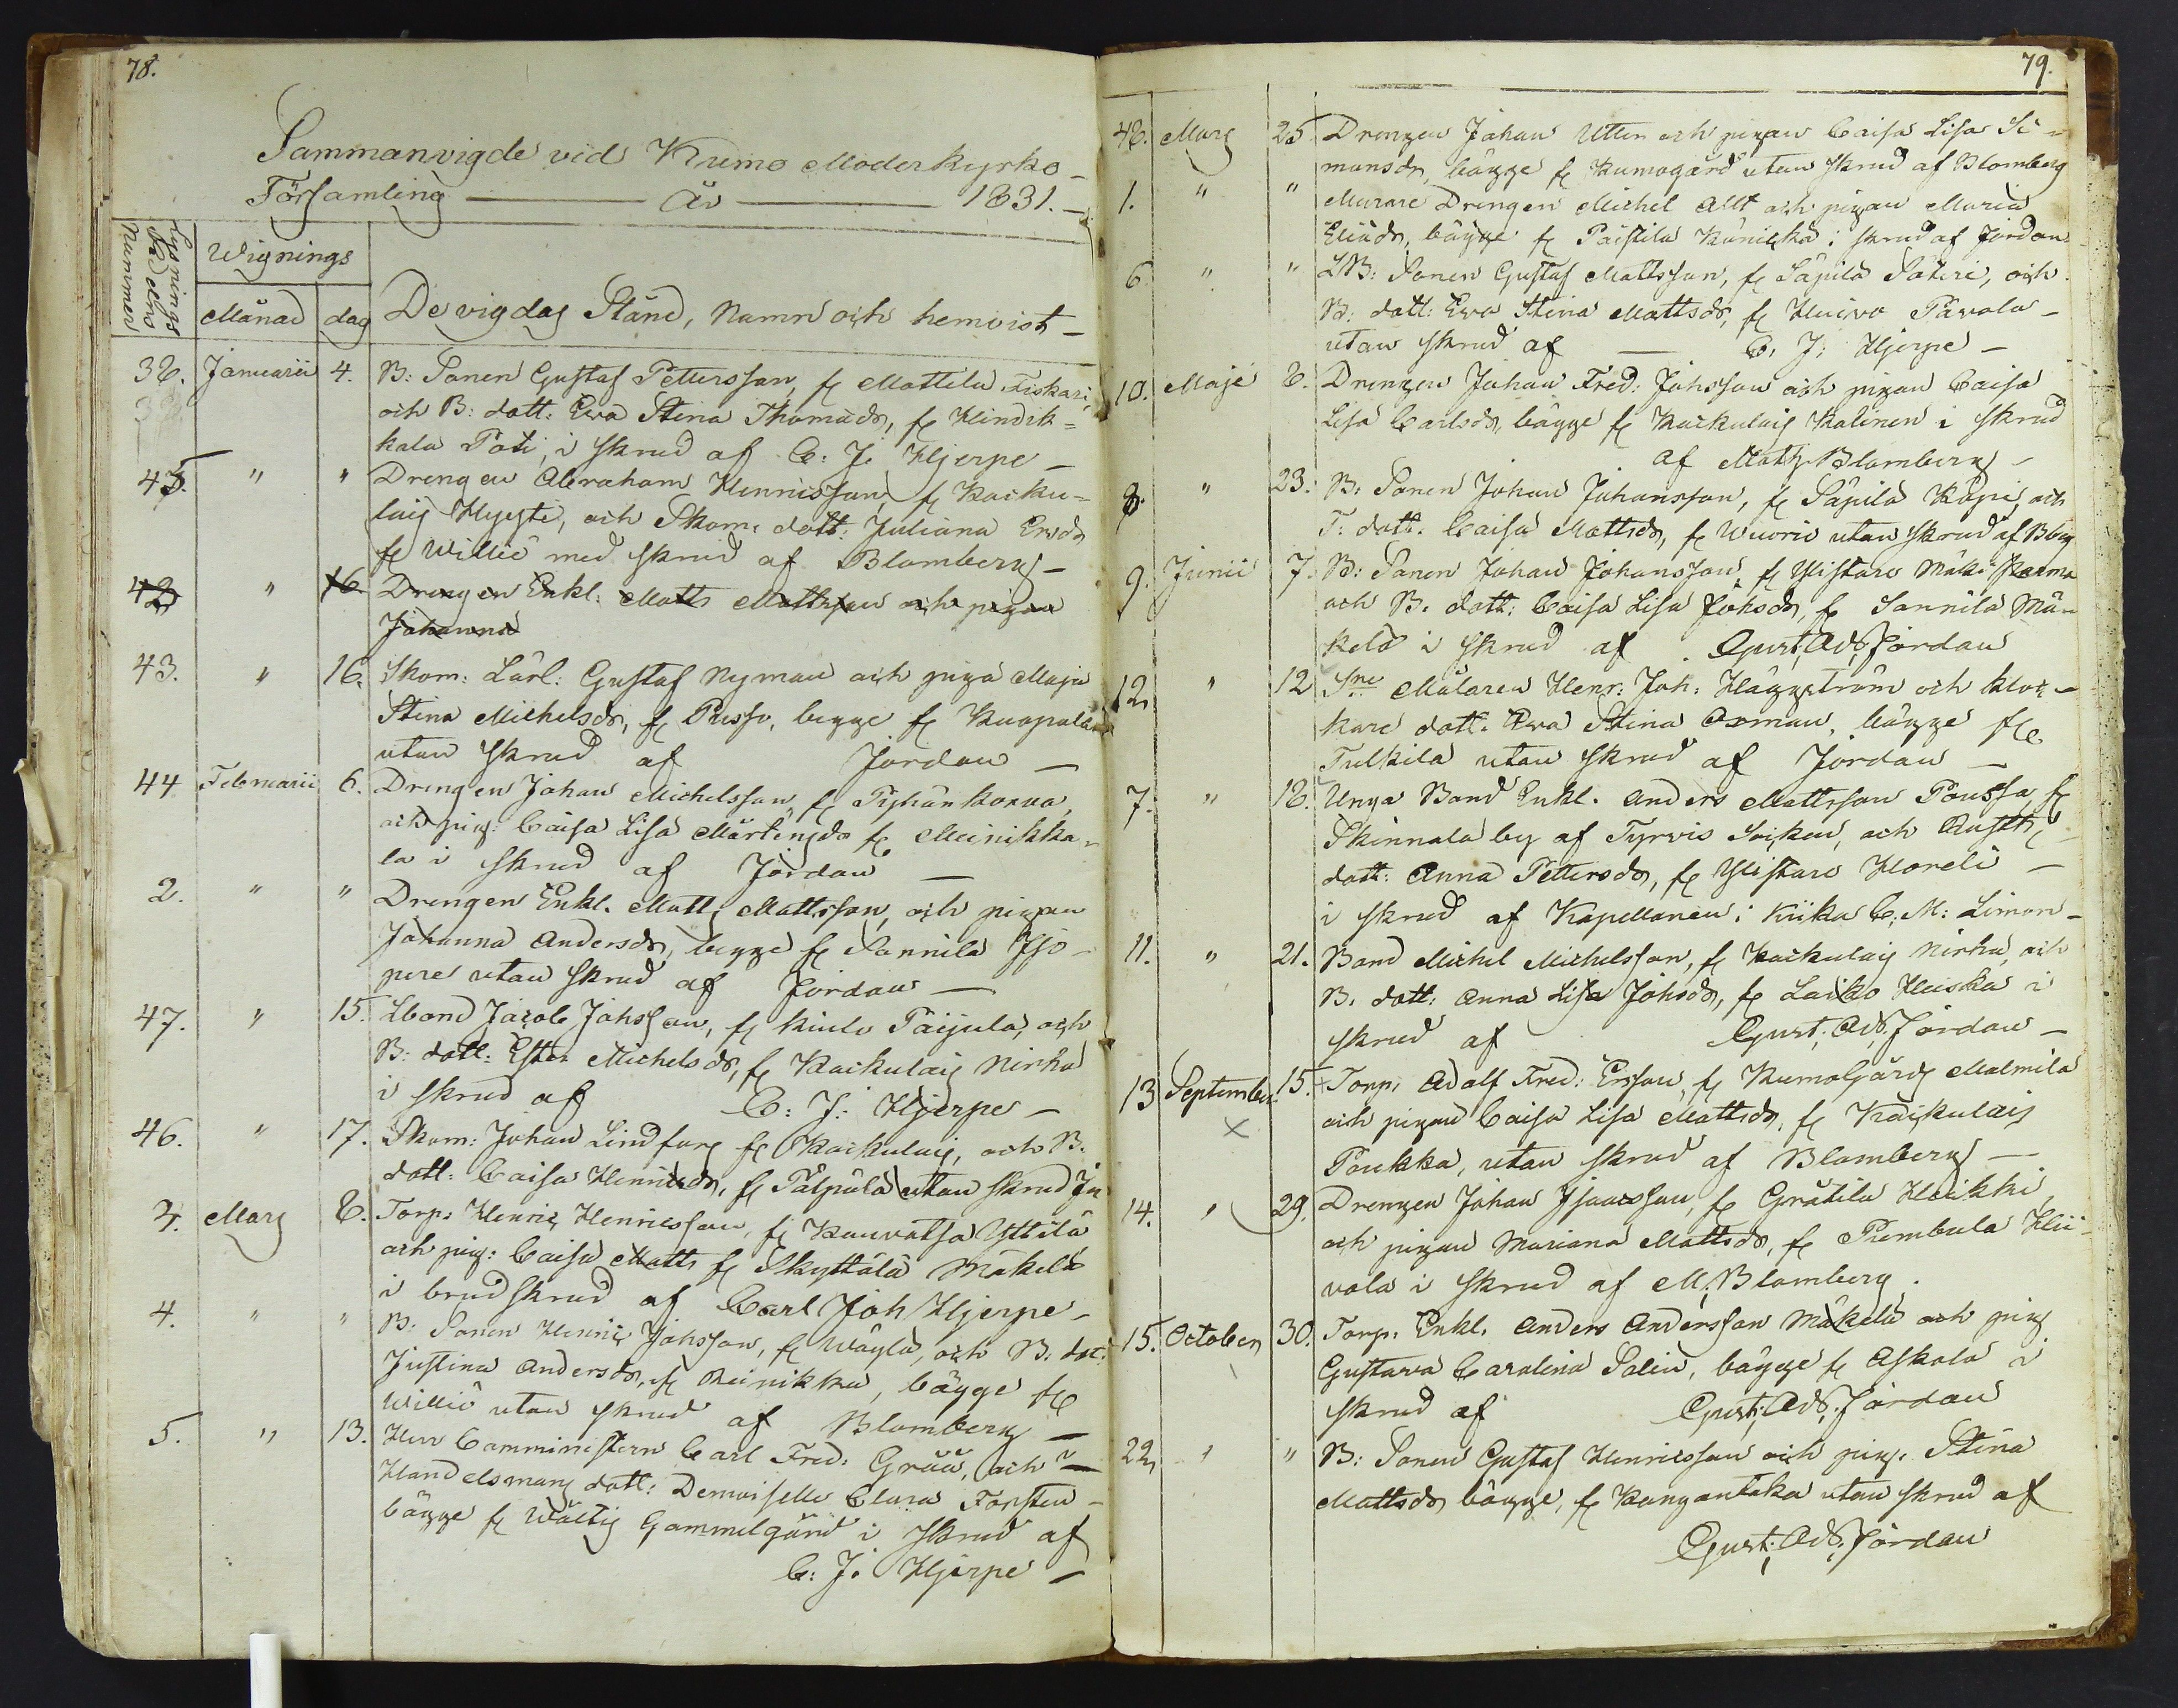 78.
Sammanvigde vid Kumo Moderkyrko-
Församling — År — 1831. —
Lysnings Bokens Nummer
Wignings
Månad dag De vigdas Stånd, Namn och hemvist —
38. Januarii 4. B: Sonen Gustaf Pettersson, fr Mattila Fiskari,
och B: dott: Eva Stina Thomasdr, fr Hindik=
kala Poti, i skrud af C: J: Hjerpe —
45. " " Drengen Abraham Hennisson, fr Kaiku=
lais Hyysti, och Skom. dott: Juliana Ersdr
fr Willio med skrud af Blomberg —
42 " 16 Drengen Enkl: Matts Mattsson och pigan
Johanna
43. " 16. Skom: Lärl: Gustaf Nyman och piga Maja
Stina Michelsdr, fr Pusso, begge fr Kuopala
utan skrud af Jordan —
44 Februarii 6. Drengen Johan Michelsson, fr Pyhänkorva,
och pig: Caisa Lisa Mårtensdr fr Meinikka-
la i skrud af Jordan —
2. " " Drengen Enkl. Matts Mattsson, och pigan
Johanna Andersdr, begge fr Sonnila Iso-
pere utan skrud af Jordan —
47. " 15. LBond Jacob Johsson, fr Kiulo Päijula, och
B: dott: Ester Michelsdr, fr Kaikulais Nirha
i skrud af C: J: Hjerpe —
46. " 17. Skom: Johan Lindfors fr Kaikulais, och B.
dott: Caisa Henricsdr, fr Pälpälä utan skrud
4. Mars 8. Torp: Henric Henricsson, fr Kauvatsa Yttilä
och pig: Caisa Matts fr Skyttälä Mäkelä
i brudskrud af Carl Joh Hjerpe —
4. " " B: Sonen Henric Johsson, fr Wäylä, och B. dot:
Justina Andersdr, fr Reinikka, bägge fr
Willio utan skrud af Blomberg —
5. " 13. Herr Comministern Carl Fred: Grää, och
Handelsmans dott: Demoiselle Clara Forsten —
bägge fr Wältis Gammelgård i skrud af
C: J: Hjerpe —
79.
48. Mars 25. Drengen Johan Utter och pigan Caisa Lisa Si=
monsdr, bägge fr Kumogård utan skrud af Blomberg
1. " " Murare Drengen Michel Allt och pigan Maria
Eliädr, bägge fr Paistila Känikkä i skrud af Jordan
6 " " LB: Sonen Gustaf Mattsson, fr Säpilä Säteri, och
B: dott: Eva Stina Mattsdr, fr Huivo Pävola —
utan skrud af — C. J. Hjerpe —
10. Maji 8. Drengen Johan Fred: Johsson och pigan Caisa
Lisa Carlsdr, bägge fr Kaikulais Kalinen i skrud
af Matts Blomberg —
8. " 23. B: Sonen Johan Johansson, fr Säpilä Käpi, och
T: dott. Caisa Mattsdr, fr Wuorio utan skrud af Bbg
9. Junii 7. B: Sonen Johan Johansson, fr Ylistaro Mäki Karma
och B. dott: Caisa Lisa Johsdr, fr Sonnila Män
kelä i skrud af Gust: Ad: Jordan
12, " 12 Sne Målaren Henr: Joh: Häggström och Kloc-
kare dott. Eva Stina Axman, bägge fr
Tulkila utan skrud af Jordan —
7. " 18. Unga Bond Enkl. Anders Mattsson Pousssa fr
Skinnala by af Tyrvis Socken, och Rustth
dott: Anna Pettersdr, fr Ylistaro Horeli —
i skrud af Kapellanen i Kiika C. M: Limon —
11. " 21. Bond Michel Michelsson, fr Kaikulais Nirha, och
B. dott: Anna Lisa Johsdr, fr Laiko Heiska i
skrud af Gust: Ad: Jordan —
13 September 15. Torp. Adolf Fred: Ersson, fr Kumogårds Malmila
och pigan Caisa Lisa Mattsdr, fr Kaikulais
Poukka, utan skrud af Blomberg —
14. " 29. Drengen Johan Isaacsson, fr Gråtila Heikki,
och pigan Mariana Mattsdr, fr Pumbula Hii-
vola i skrud af M, Blomberg.
15. October 30. Torp. Enkl. Anders Andersson Mäkelä och pig
Gustava Carolina Salin, bägge fr Askola i
skrud af Gust; Ad; Jordan
22, " " B: Sonen Gustaf Henricsson och pig. Stina
Mattsdr bägge, fr Kangantaka utan skrud af
Gust: Ad: Jordan